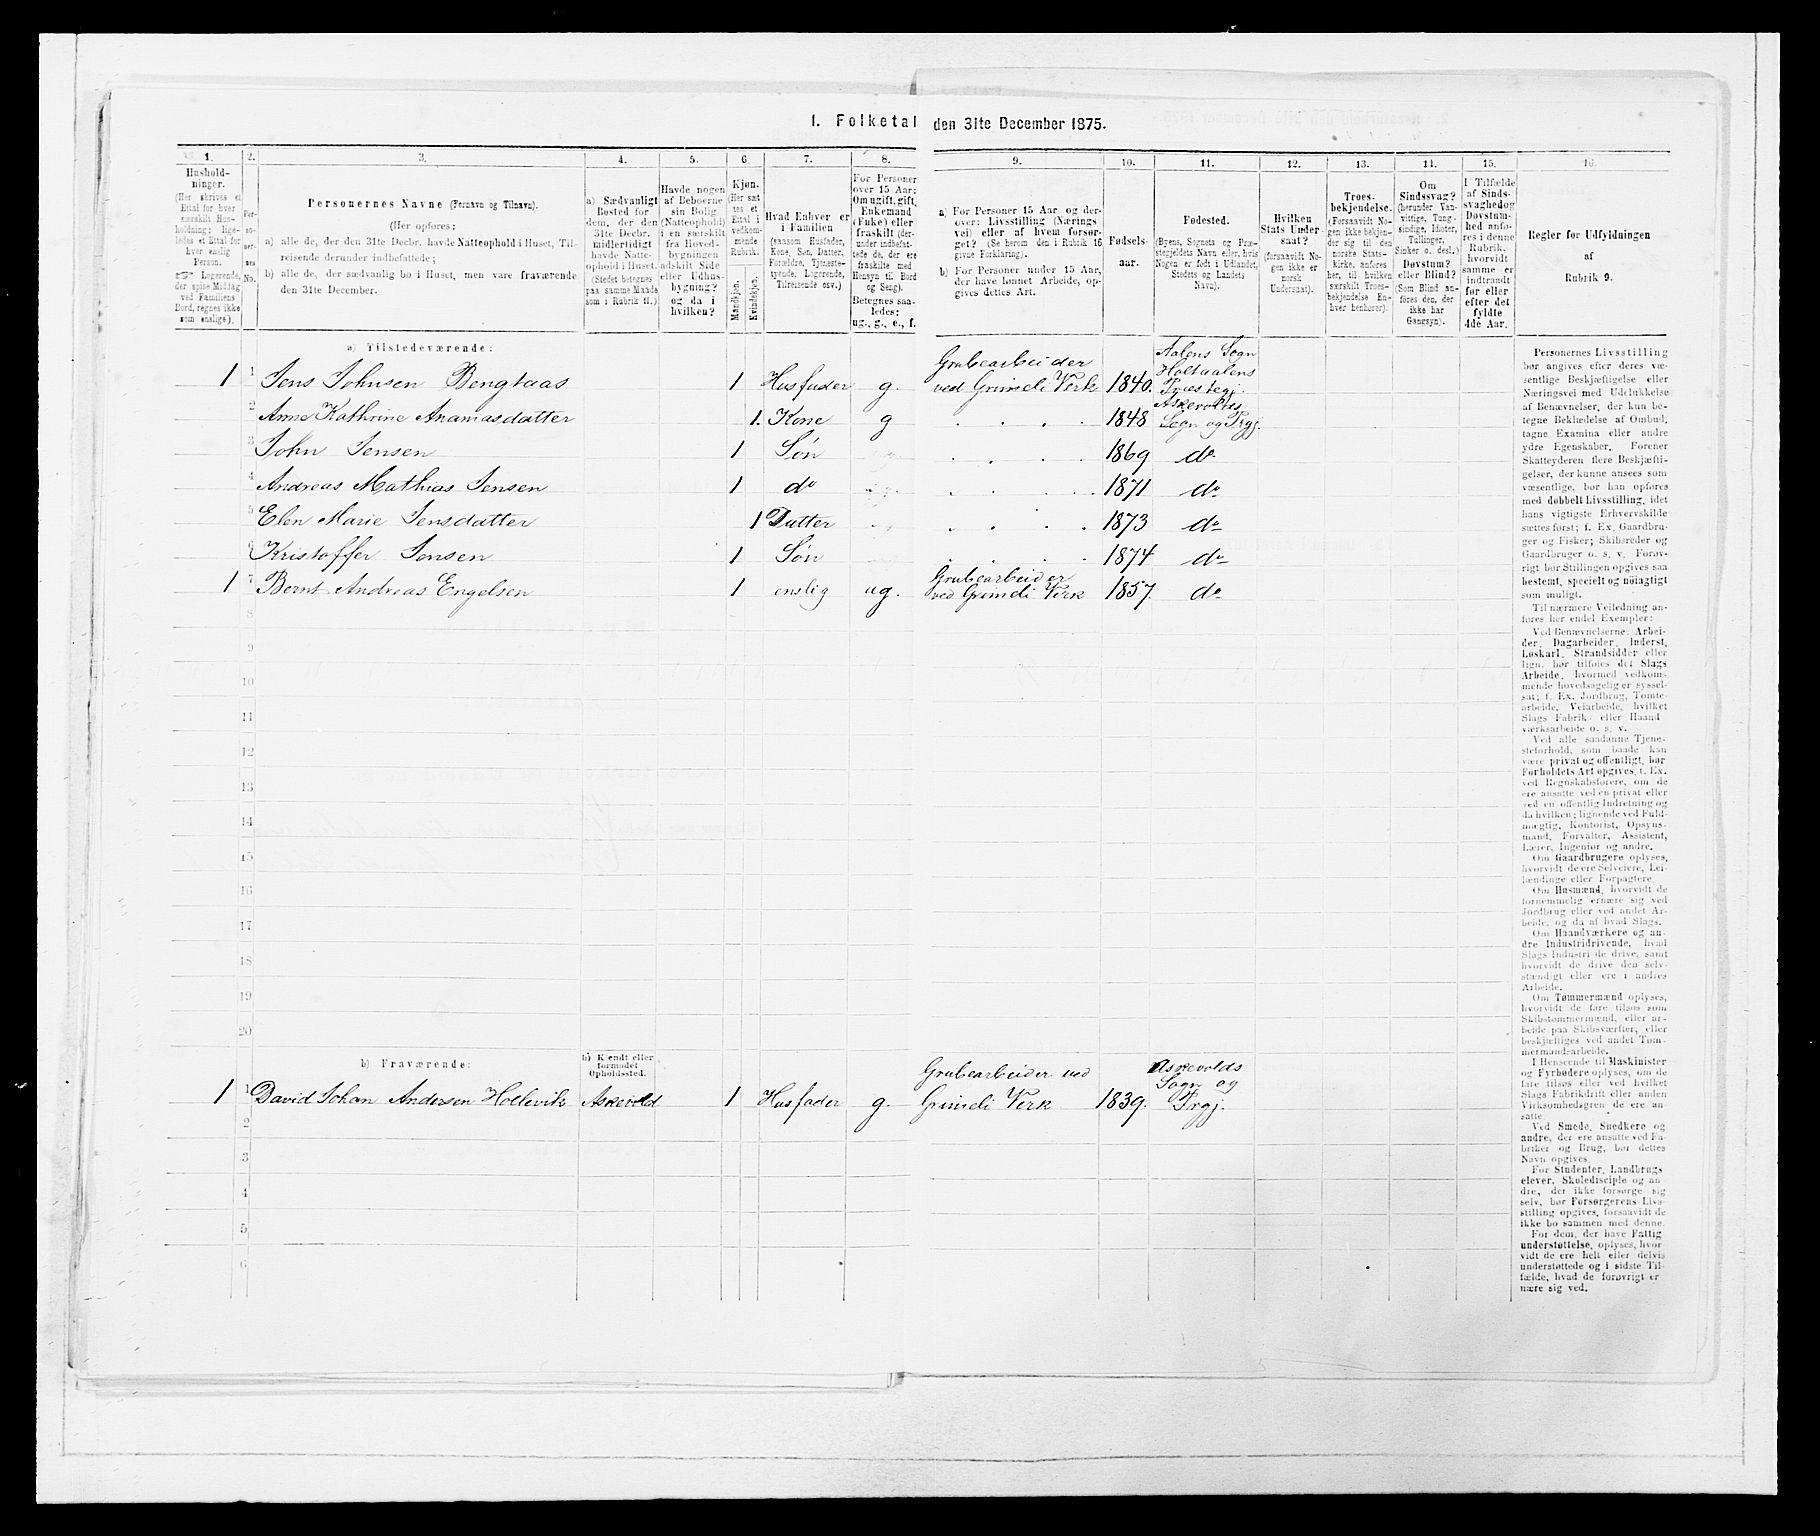 I. Folketal den 31te December 1875.
1. 2. 3. 4. 5. 6. 7. 8. 9. 10. 11. 12. 13. 14. 15. 16.
Hushold-
ninger.
(Her skrives et
Ettal for hver
særskilt Hus-
holdning; lige-
ledes et Ettal for
hver enslig
Person.
☞ Logerende,
der spise Middag
ved Familiens
Bord, regnes ikke
som enslige).
Per-
so-
ner-
nes
No.
Personernes Navne (Fornavn og Tilnavn).
(Her opføres:
a) alle de, der den 31te Decbr. havde Natteophold i Huset, Til-
reisende derunder indbefattede;
b) alle de, der sædvanlig bo i Huset, men vare fraværende
den 31te December.
a) Sædvanligt
Bosted for
dem, der den
31te Decbr.
midlertidigt
havde Natte-
ophold i Huset.
(Stedet betegnes
paa samme Maade
som i Rubrik 11.)
Havde nogen
af Beboerne
sin Bolig
(Natteophold)
i en særskilt
fra Hoved-
bygningen
adskilt Side
eller Udhus-
bygning?
og da i
hvilken?
Kjøn.
(Her sæt-
tes et
Ettal i
vedkom-
mende
Rubrik.
Mandkjøn.
Kvindekjøn.
Hvad Enhver er
i Familien
(saasom Husfader,
Kone, Søn, Datter,
Forældre, Tjeneste-
tyende, Logerende,
Tilreisende osv.)
For Personer
over 15 Aar:
Om ugift, gift,
Enkemand
(Enke) eller
fraskilt (der-
under indbefat-
tede de, der ere
fraskilte med
Hensyn til Bord
og Seng).
Betegnes saa-
ledes:
ug., g., e., f.
a) For Personer 15 Aar og der-
over: Livsstilling (Nærings
vei) eller af hvem forsør-
get? (Se herom den i Rubrik 16
givne Forklaring).
b) For Personer under 15 Aar,
der have lønnet Arbeide, op-
gives dettes Art.
Fødsels-
aar.
Fødested.
(Byens, Sognets og Præ-
stegjeldets Navn eller, hvis
Nogen er født i Udlandet,
Stedets og Landets
Navn).
Hvilken
Stats Under-
saat?
(forsaavidt No-
gen ikke er
norsk
Undersaat).
Troes-
bekjendelse.
(Forsaavidt No-
gen ikke bekjen-
der sig til den
norske Stats-
kirke, anføres
her, til hvilken
særskilt Troes-
bekjendelse En-
hver henhører).
Om
Sindssvag?
(herunder Van-
vittige, Tung-
sindige, Idioter,
Tullinger,
Sinker o. desl.)
Døvstum?
eller Blind?
(Som Blind an-
føres den, der
ikke har
Gangsyn).
I Tilfælde
af Sinds-
svaghed og
Døvstum-
hed anfø-
res i denne
Rubrik,
hvorvidt
samme er
indtraadt
før eller
efter det
fyldte
4de Aar.
Regler for Udfyldningen
af
Rubrik 9.
a) Tilstedeværende:
1 1 Jens Johnsen Bengtaas 1 Husfader g. Grubearbeider ved Grimeli Verk 1840. Aalens Sogn Holtaalens Præstegj.
2 Anne Kathrine Ananiasdatter 1. Kone g 1848 Askevolds Sogn og Prgj.
3 John Jensen 1 Søn 1869 do
4 Andreas Mathias Jensen 1 do 1871 do
5 Elen Marie Jensdatter 1 Datter 1873 do
6 Kristoffer Jensen 1 Søn 1874 do
1 7 Bernt Andreas Engelsen 1 enslig ug. Grubearbeider ved Grimeli Verk 1857. do
8
9
10
11
12
13
14
15
16
17
18
19
20
b) Fraværende:
b) Kjendt eller
formodet
Opholdssted.
1 1 David Johan Andersen Hollevik Askevold 1 Husfader g. Grubearbeider ved Grimeli Verk 1839. Askevolds Sogn og Prgj.
2
3
4
5
6
Personernes Livsstilling
bør angives efter deres væ-
sentlige Beskjæftigelse eller
Næringsvei med Udelukkelse
af Benævnelser, der kun be-
tegne Beklædelse af Ombud,
tagne Examina eller andre
ydre Egenskaber. Forener
Skatteyderen flere Beskjæfti-
gelser, der kunne ansees som
væsentlige, bør han opføres
med dobbelt Livsstilling, idet
hans vigtigste Erhvervskilde
sættes først; f. Ex. Gaardbru-
ger og Fisker; Skibsreder og
Gaardbruger o. s. v. Forøv-
rigt bør Stillingen opgives saa
bestemt, specielt og nøiagtigt
som muligt.
Til nærmere Veiledning an-
føres her endel Exempler:
Ved Benævnelserne: Arbei-
der, Dagarbeider, Inderst,
Løskarl, Strandsidder eller
lign. bør tilføies det Slags
Arbeide, hvormed vedkom-
mende hovedsagelig er syssel-
sat; f. Ex. Jordbrug, Tomte-
arbeide, Veiarbeide, hvilket
Slags Fabrik- eller Haand-
værksarbeide o. s. v.
Ved alle saadanne Tjene-
steforhold, som baade kan
være privat og offentligt, bør
Forholdets Art opgives, f. Ex.
ved Regnskabsførere, om de
ere ansatte ved en privat eller
ved en offentlig Indretning og
da hvilken; lignende ved Fuld-
mægtig, Kontorist, Opsyns-
mand, Forvalter, Assistent,
Lærer, Ingeniør og andre.
Om Gaardbrugere oplyses,
hvorvidt de ere Selveiere, Lei-
lændinge eller Forpagtere.
Om Husmænd, hvorvidt de
fornemmelig ernære sig ved
Jordbrug eller ved andet Ar-
beide, og da af hvad Slags.
Om Haandværkere og an-
dre Industridrivende, hvad
Slags Industri de drive, samt
hvorvidt de drive den selv-
stændigt eller ere i andres
Arbeide.
Om Tømmermænd oplyses,
hvorvidt de fare tilsøs som
Skibstømmermænd, eller ar-
beide paa Skibsværfter, eller
beskjæftiges ved andet Tøm-
mermandsarbeide.
I Henseende til Maskinister
og Fyrbødere oplyses, om de
fare tilsøs eller ved hvilket
Slags Fabrikdrift eller anden
Virksomhedsgren de ere an-
satte.
Ved Smede, Snedkere og
andre, der ere ansatte ved Fa-
briker og Brug, bør dettes
Navn opgives.
For Studenter, Landbrugs
elever, Skoledisciple og an-
dre, der ikke forsørge sig
selv, bør Forsørgerens Livs-
stilling opgives, forsaavidt de
ikke bo sammen med denne.
For dem, der have Fattig
understøttelse, oplyses, hvor-
vidt de ere helt eller delvis
understøttede og i sidste Til-
fælde, hvad de forøvrigt er
nære sig ved.